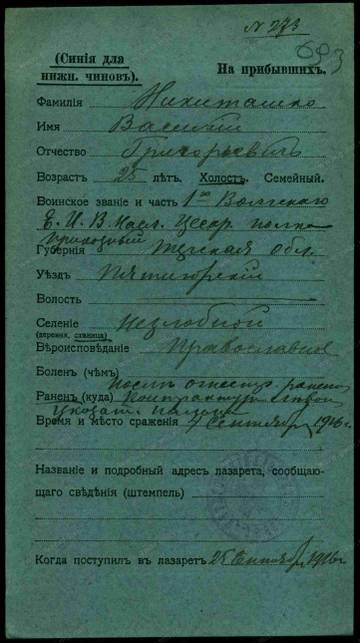 № 273
693
(Синія для
нижн. чиновъ).
На прибывшихъ.
Фамилія Никиташко
Имя Василий
Отчество Григорьевичъ
Возрастъ 25 лѣтъ. Холостъ. Семейный.
Воинское званіе и часть 1го Волгскаго
Е. И. В. Насл. Цесар. полка
приказный
Губернія Терская Обл.
Уѣздъ Пятигорский
Волость
Селеніе Незлобной
(деревня, станица)
Вѣроисповѣданіе Православное
Боленъ (чѣмъ)
послѣ огнестр. ранения
Раненъ (куда) контрактур
указат. пальца
Время и мѣсто сраженія 7 Сентября 1916 г.
Названіе и подробный адресъ лазарета, сообщаю-
щаго свѣдѣнія (штемпель)
Когда поступилъ въ лазаретъ 25 Сентября 1916 г.